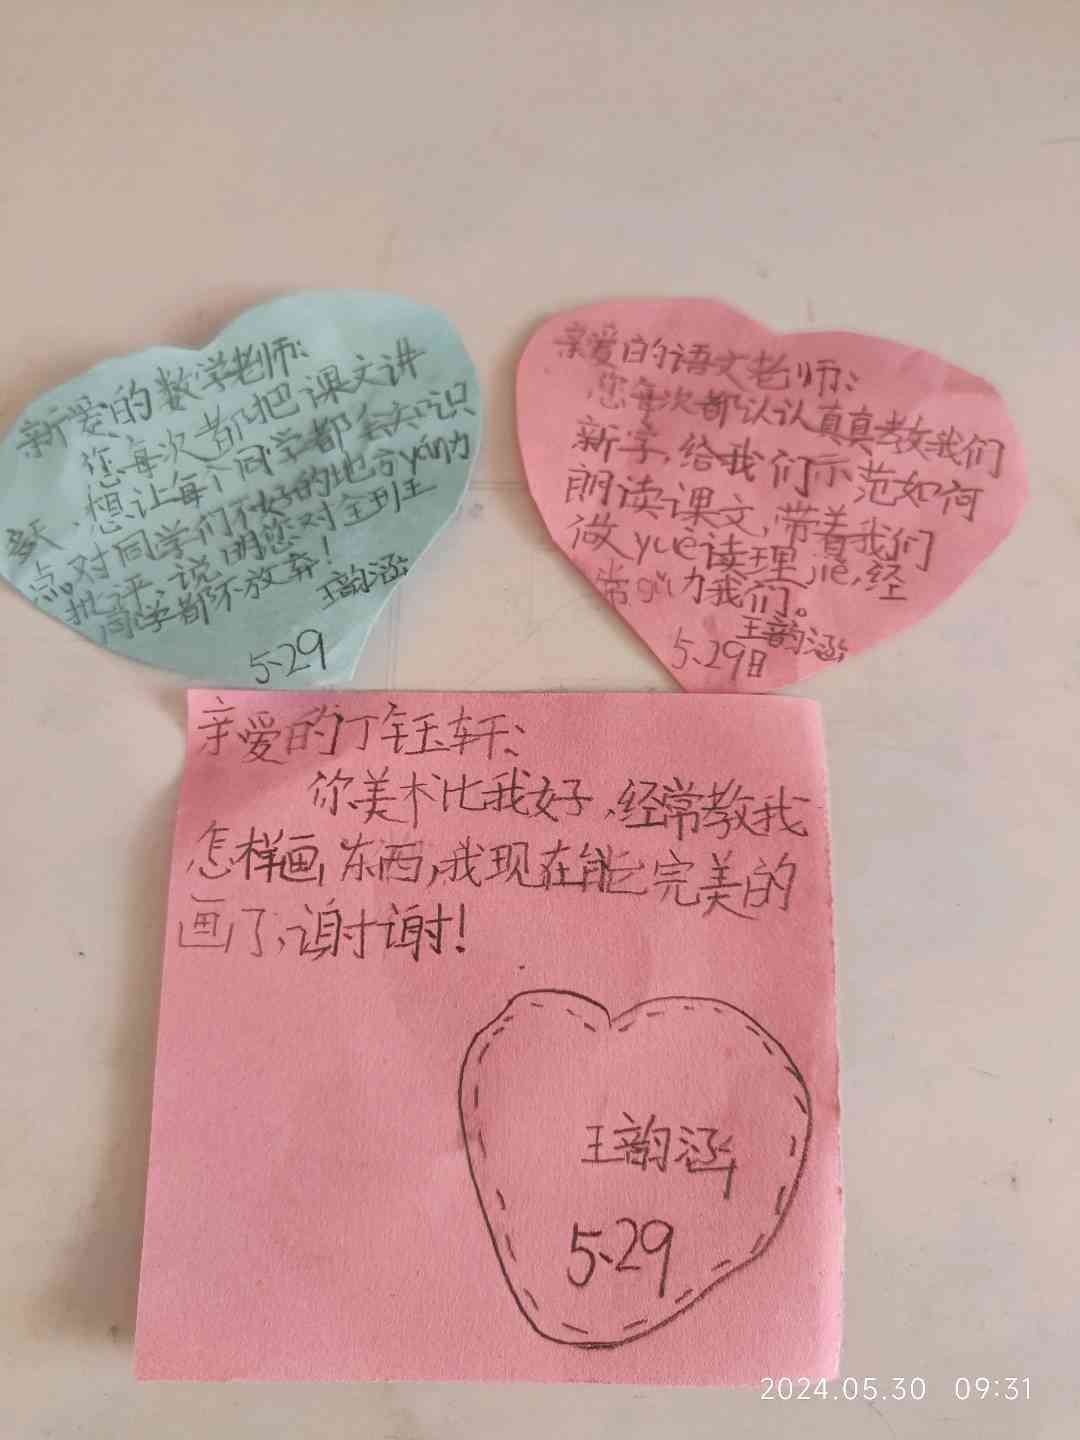 新爱的数学老师:
您每次都把课文讲
多天、想让每个同学都会知识
点。对同学们不好的地方yán力
批评、说明您对全班
同学都不放弃!
王韵涵
5、29
亲爱的语文老师:
您每次都认认真真教我们
新字,给我们示范如何
朗读课文,带着我们
做yuè读理jiě,经
常gǔ力我们。
王韵涵
5、29日
亲爱的丁钰轩:
你美术比我好,经常教我
怎样画东西,我现在能完美的
画了,谢谢!
王韵涵
5、29
2024.05.30 09:31